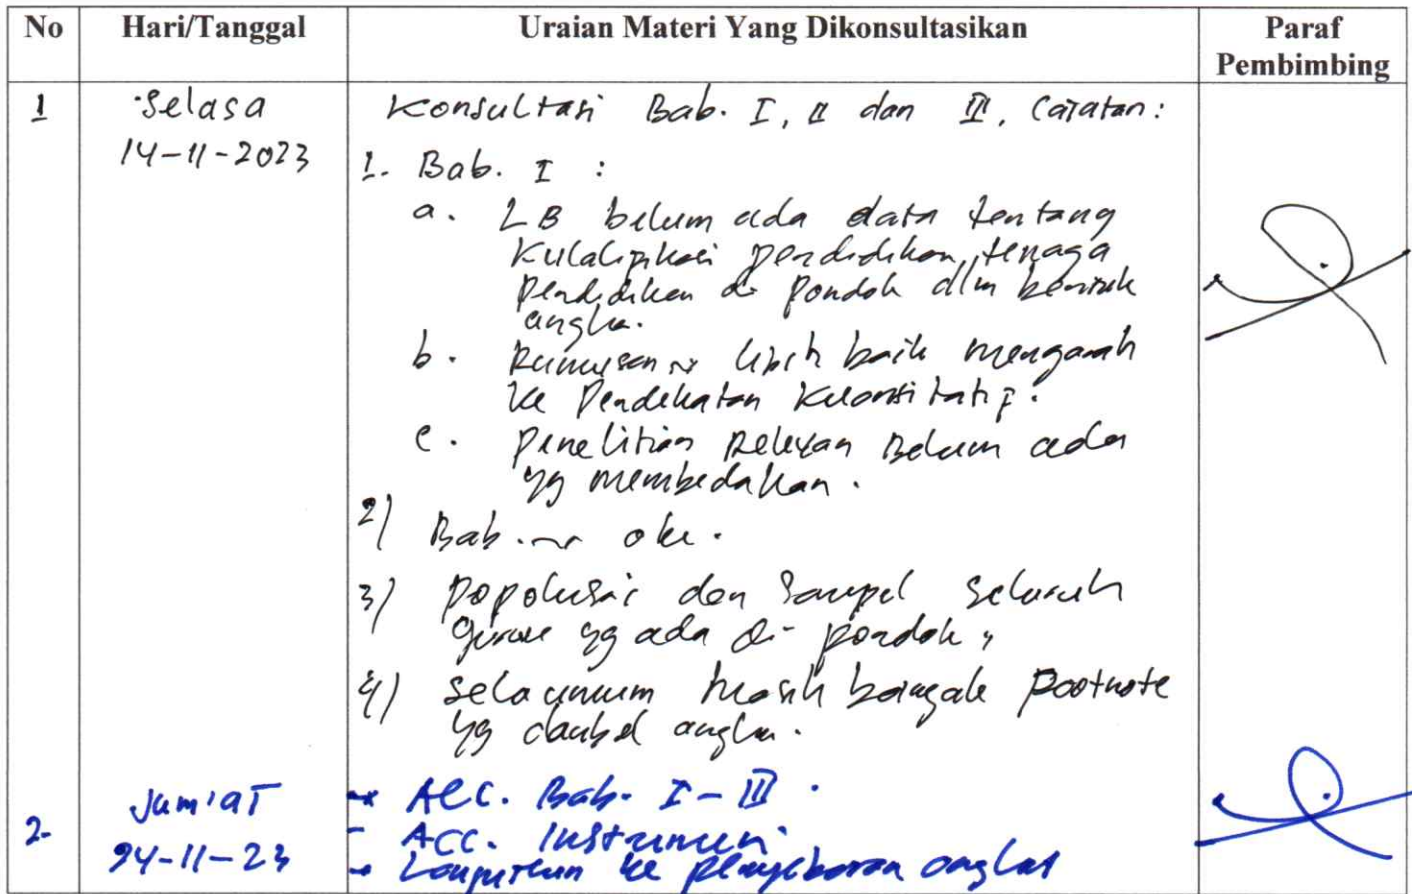 No Hari/Tanggal Uraian Materi Yang Dikonsultasikan Paraf Pembimbing
1 Selasa Konsultasi Bab. I, II dan III, Catatan:
14-11-2023
1. Bab. I :
a. LB belum ada data tentang
pendidikan, tenaga
pendidikan di pondok dlm bentuk
angka.
b. Rumusan lebih baik mengarah
ke Pendekatan Kuantitatif.
c. penelitian Relevan Belum ada
yg membedakan.
2) Bab. oke.
3) dan Sampel seluruh
guru yg ada di pondok,
4) masih banyak Footnote
yg doubel angka.
2- Jum'at ACC. Bab. I - III.
24-11-23 - ACC. Instrumen
- Lanjutkan ke penyebaran angket